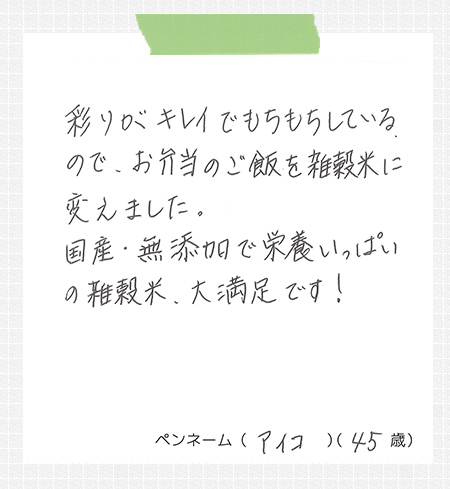 彩りがキレイでもちもちしている
ので、お弁当のご飯を雑穀米に
変えました。
国産・無添加で栄養いっぱい
の雑穀米、大満足です!
ペンネーム ( アイコ )( 45 歳)